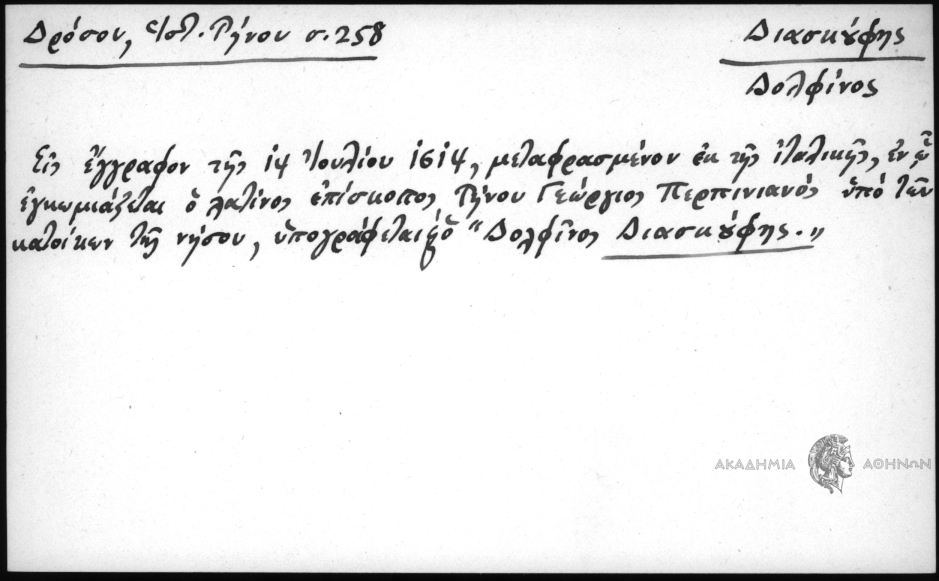 Δρόσου, Ἱστ. Τήνου σ. 258
Διασκȣ́φης
Δολφίνος
Εἰς ἔγγραφον τῆς 14 Ἰουλίου 1614, μεταφρασμένον ἐκ τῆς ἰταλικῆς, ἐν ᾧ
ἐγκωμιάζεται ὁ λατῖνος ἐπίσκοπος Τήνου Γεώργιος Περπινιανός ὑπό τῶν
κατοίκων τῆς νήσου, ὑπογράφεται ὁ "Δολφῖνος Διασκȣ́φης."
ΑΚΑΔΗΜΙΑ ΑΘΗΝΩΝ